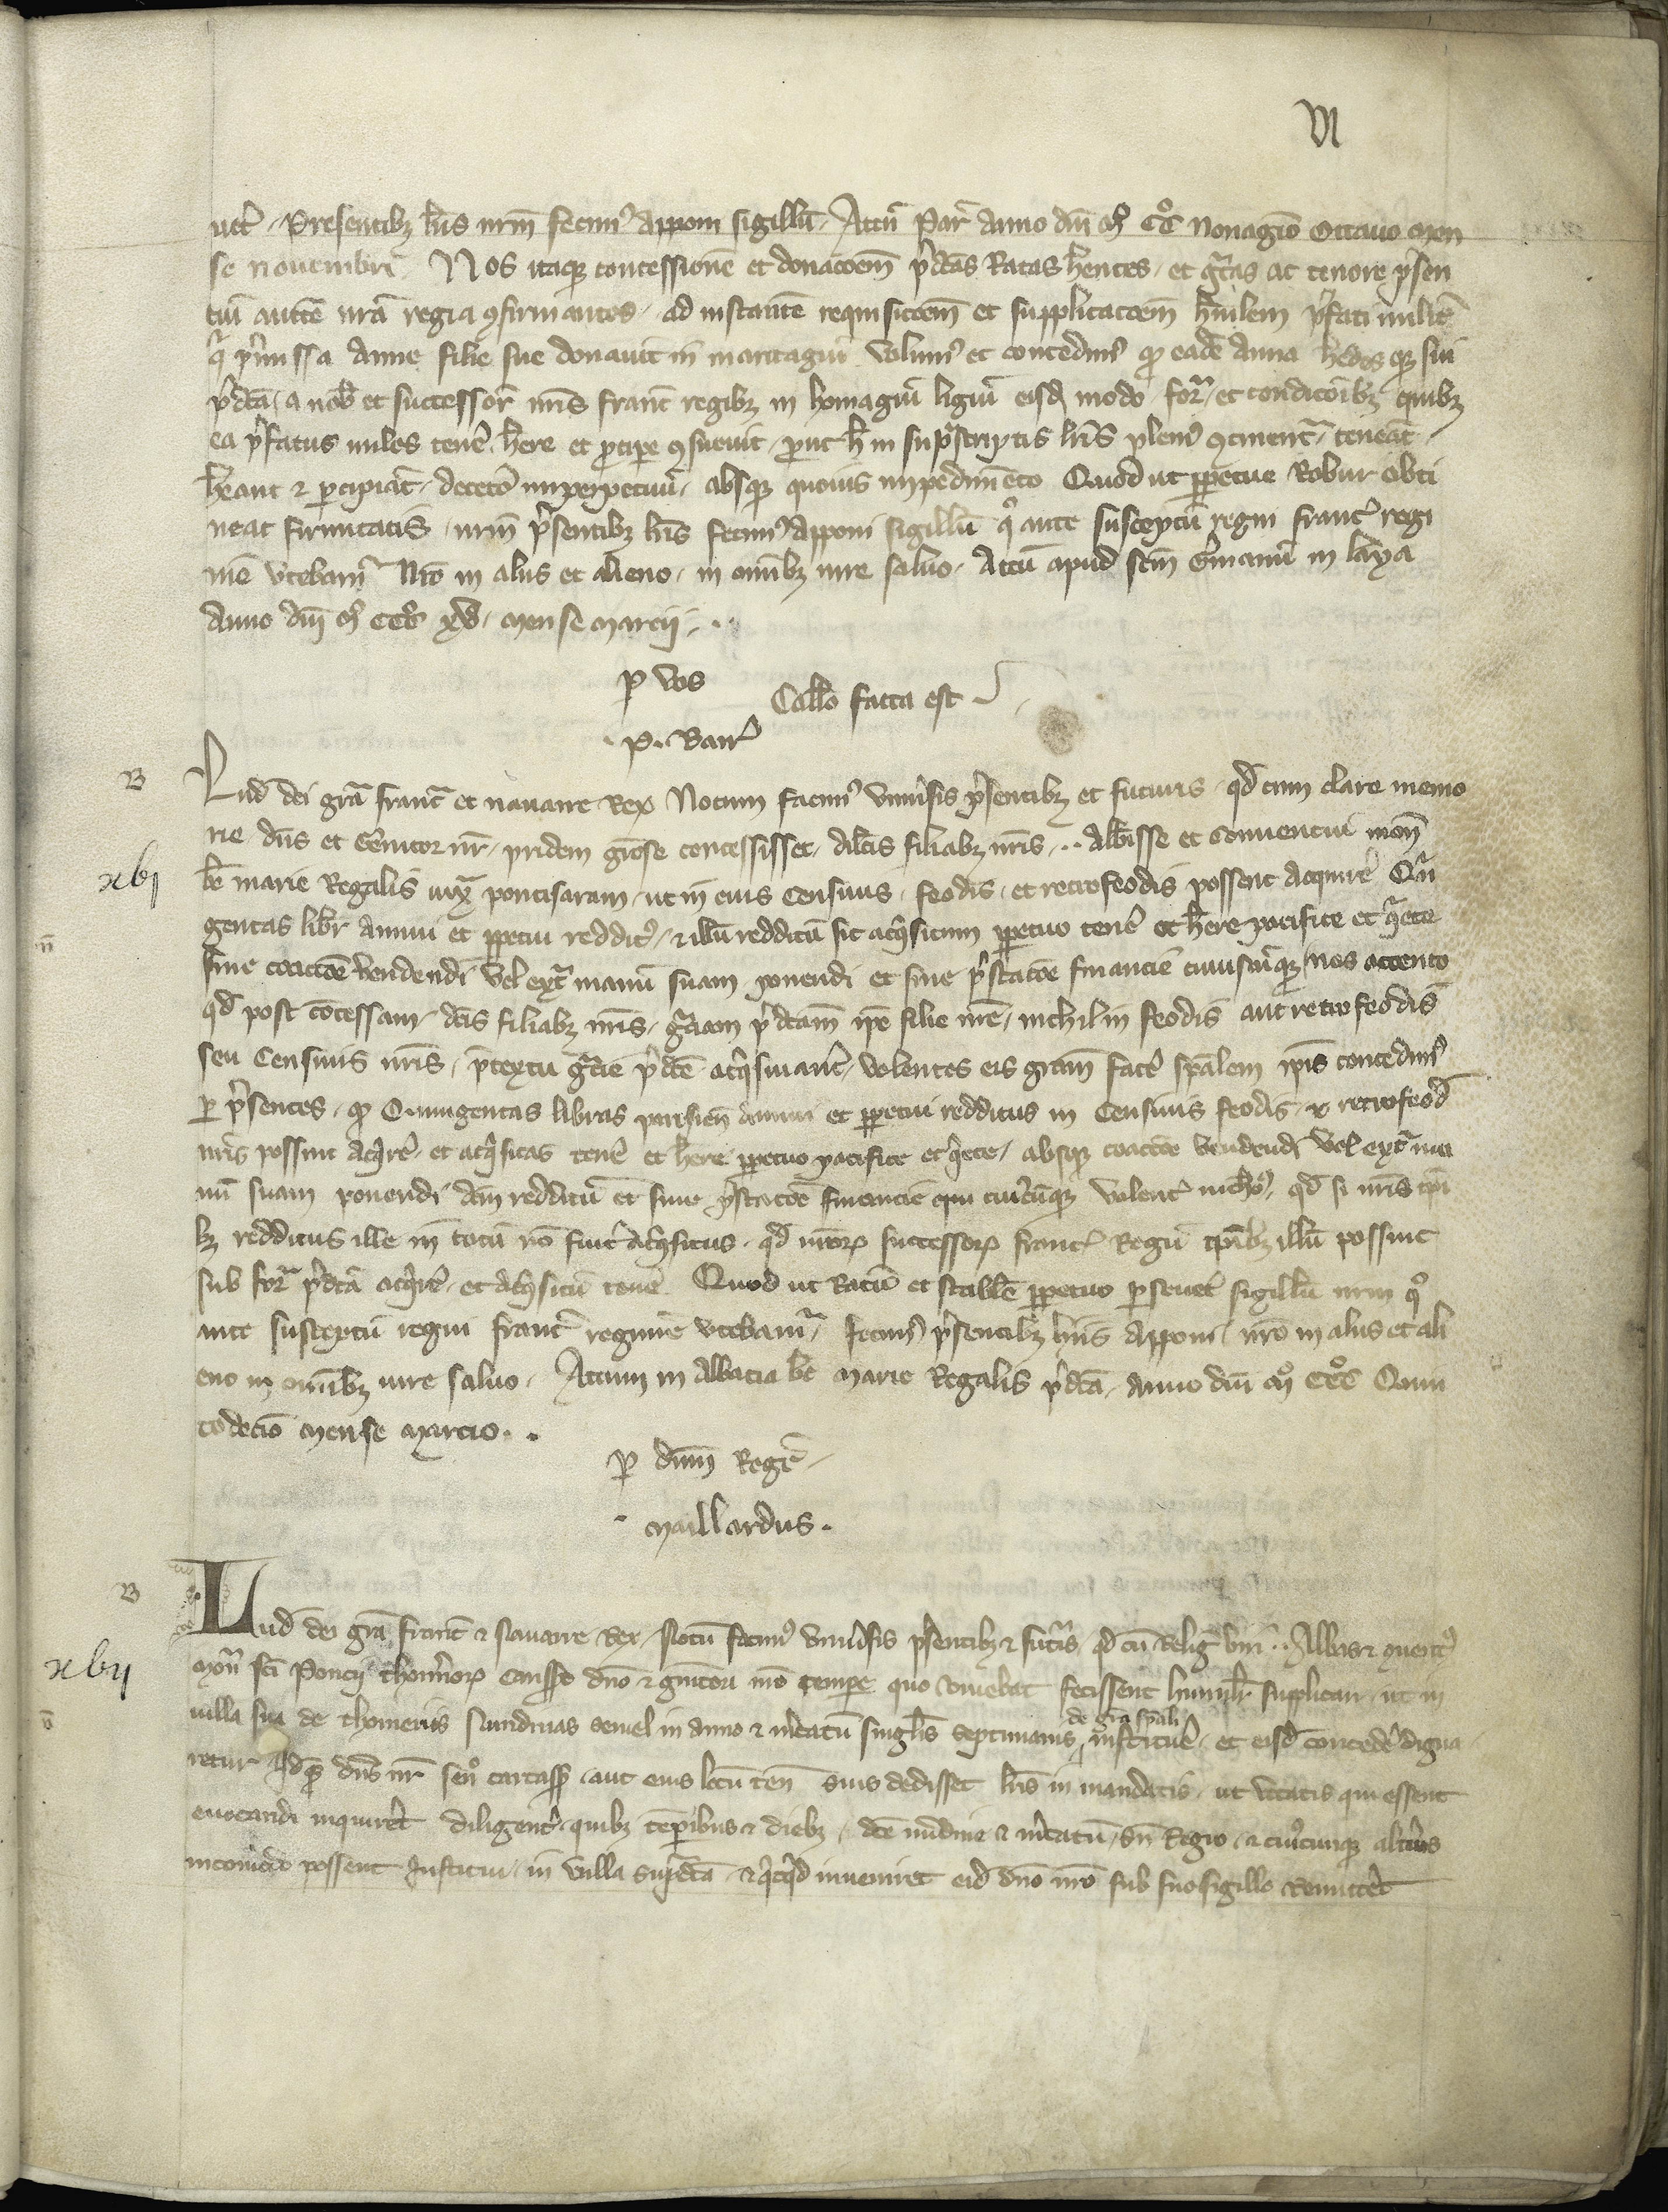 VI
uet̃ . Presentibꝫ lr̃is nr̃m fecimꝰ apponi sigillũ . Actũ Par̃ anno dñi mͦ CCͦ Nonagẽo octauo men
se nouembri . Nos itaqꝫ concessionẽ et donac̃oem p̃dc̃as Ratas hẽntes . et gr̃atas ac tenore p̃sen
tiũ auctẽ nr̃a regia ꝯfirmantes . ad instantẽ requisic̃oem et supplicac̃oem hũilem p̃fati militẽ
qͥ p̃missa Anne filie sue donauit in maritagiũ volumꝰ et concedimꝰ ꝙ eadẽ Anna hẽdesqꝫ sui
p̃dc̃a . a nob̃ et successor̃ nr̃is franc̃ regibꝫ in homagiũ ligiũ eisd̃ modo . forᵃ . et condic̃oibꝫ quibꝫ
ea p̃fatus miles tenẽ . hẽre et ꝑcipẽ ꝯsueuit . prout h̃ in supᵃscriptis lr̃is pleniꝰ ꝯtinentʳ . teneãt
hẽant ⁊ percipiãt . decetẽo inperpetuũ . absqꝫ quouis impedimẽto Quod ut ꝑpetue Robur obti
neat firmitatis . nr̃m p̃sentibꝫ lr̃is fecimꝰ apponi sigillũ qͦ ante susceptũ regni franc̃ regi
mẽ vtebamʳ Nr̃o in aliis et alieno . in om̃ibꝫ iure saluo . Actũ apud sc̃m Gr̃manũ in laya
Anno dñi mͦ CCCͦ xv . mense marcij . .
ꝑ vos
Coll̃o facta est
. P . Barr̃
B
Lud̃ dei gr̃a franc̃ et nauarre Rex Notum facimꝰ vniũsis p̃sentibꝫ et futuris . qd̃ cum clare memo
rie dñs et Genitor nr̃ . pridem gr̃ose concessisset . dilc̃is filiabꝫ nr̃is . . . Abb̃isse et Conuentui mon̄
xvj
be marie Regalis iuxᵃ pontisaram . ut in eius Censiuis . feodis . et retrofeodis possent acquirẽ Qui
gentas libr̃ annui et ꝑpetui redditꝰ . ⁊ illũ redditũ sic acqͥsitum ꝑpetuo tenẽ et hẽre pacifice et qͥete
sine coactõe vendendi vel extᵃ manũ suam ponendi et sine p̃stac̃oe financiẽ cuiuscũqꝫ nos attento
qd̃ post cõcessam . dc̃is filiabꝫ nr̃is . gr̃aciam p̃dc̃am ip̃e filie nr̃e . nichil in feodis aut retrofeodis
seu Censiuis nr̃is . p̃textu gr̃acie p̃dc̃e acqͥsiuant . volentes eis gr̃am facẽ sp̃alem ip̃is concedimꝰ
ꝑ p̃sentes . ꝙ Quingentas libras parisieñ annui et ꝑpetui redditus in Censiuis feodis . ⁊ retrofeod̃
nr̃is possint acqͥrẽ . et acqͥsitas tenẽ et hẽre ꝑpetuo pacifice et qͥete . absqꝫ coactõe vendendi vel extᵃ ma
nũ suam ponendi dc̃m redditũ et sine p̃stac̃oe financiẽ cuiuscũqꝫ volentẽ nichͦo . qd̃ si nr̃is tp̃i
bꝫ redditus ille in totũ nõ fuit acqͥsitus . qd̃ nr̃orꝝ successorꝝ franc̃ Regũ tp̃ibꝫ illũ possint
sub forᵃ p̃dc̃a acqͥrẽ . et acqͥsitũ tenẽ Quod ut Ratũ et stabilẽ ꝑpetuo ꝑseuet̃ sigillũ nr̃m qͦ
ante susceptũ regni franc̃ regimẽ vtebamʳ . fecimꝰ p̃sentibꝫ lr̃is apponi . nr̃o in aliis et ali
eno in om̃ibꝫ iure saluo . Actum in Abbacia be Marie Regalis p̃dc̃a . Anno dñi mͦ CCCͦ Quin
todecĩo mense marcio . .
ꝑ dñm Regẽ .
Maillardus .
B
Lud̃ dei gr̃a franc̃ ⁊ Nauarre Rex . Notũ facimꝰ vniũsis p̃sentibꝫ ⁊ fut̃is . qd̃ cũ Relig̃ viri . . Abbas ⁊ ꝯuentꝰ
xvij
mon̄ sc̃i Poncij thom̃iorꝝ cariss̃o dño ⁊ gñitori nr̃o tempe quo viuebat fecissent humilr̃ supplicari . ut in
villa sua de thomeriis Nundinas semel in anno ⁊ m̃catũ singl̃is septimanis de gr̃a sp̃ali instituẽ . et eisd̃ concedẽ digna
retur Idqꝫ dñs nr̃ senͦ carcass̃ . aut eius locũ ten̄ suis dedisset lr̃is in mandatis . ut vocatis qui essent
euocandi inquiret̃ diligent̃ . quibꝫ tẽporibus ⁊ diebꝫ . dc̃e nũdine ⁊ m̃catũ . sñ Regio . ⁊ cuiꝰcunqꝫ altiũs
incomodo possent Institui . in villa supᵃdc̃a ⁊ qͥcqͥd inueniret eid̃ dño nr̃o sub suo sigillo remittet̃